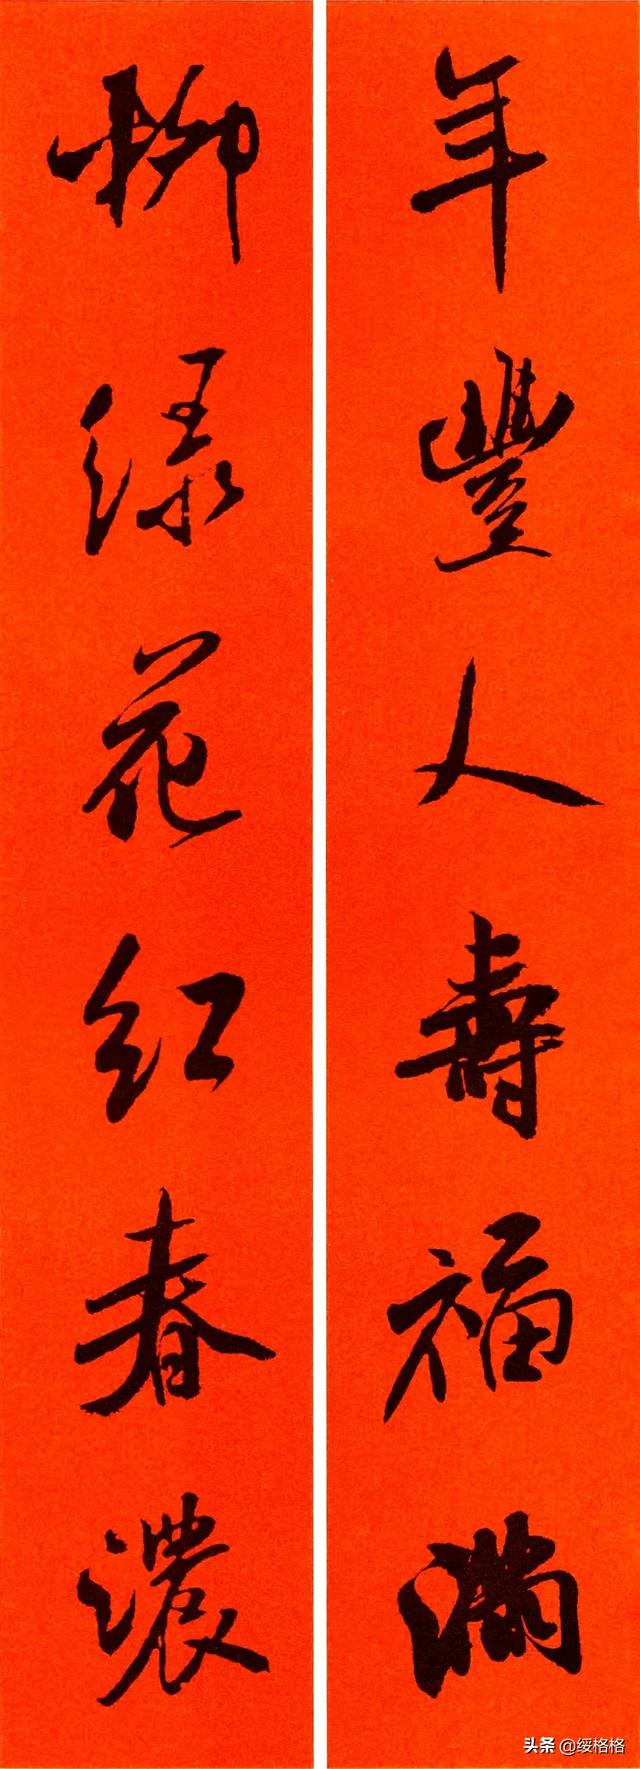 年豐人壽福滿
柳绿花红春濃
头条 @绥格格